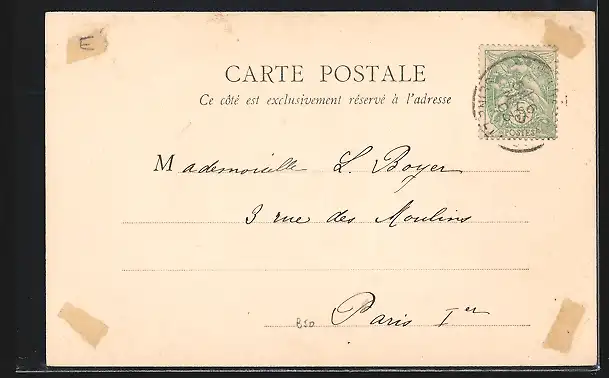 E
CARTE POSTALE
Ce côté est exclusivement réservé à l'adresse
POSTES
Mademoiselle L. Boyer
3 rue des Moulins
Paris Ier
B50